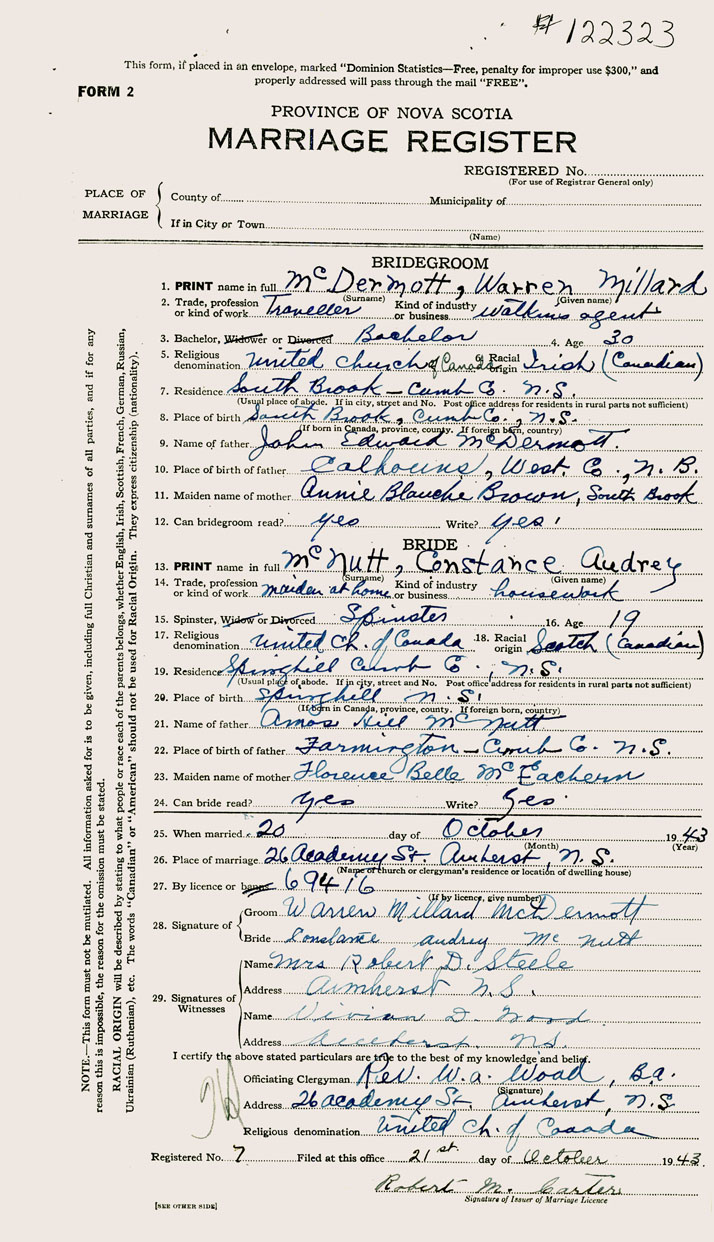 # 122323
This form, if placed in an envelope, marked "Dominion Statistics—Free, penalty for improper use $300," and
properly addressed will pass through the mail "FREE".
FORM 2
PROVINCE OF NOVA SCOTIA
MARRIAGE REGISTER
REGISTERED No.
(For use of Registrar General only)
PLACE OF MARRIAGE
County of Municipality of
If in City or Town
(Name)
BRIDEGROOM
1. PRINT name in full McDermott, Warren Millard
(Surname) (Given name)
2. Trade, profession or kind of work Traveller Kind of industry or business Watkins agent
3. Bachelor, Widower or Divorced Bachelor 4. Age 30
5. Religious denomination United Church of Canada 6. Racial origin Irish (Canadian)
7. Residence South Brook – Cumb Co. N.S.
(Usual place of abode. If in city, street and No. Post office address for residents in rural parts not sufficient)
8. Place of birth South Brook, Cumb Co., N.S.
(If born in Canada, province, county. If foreign born, country)
9. Name of father John Edward McDermott.
10. Place of birth of father Calhouns, West. Co., N.B.
11. Maiden name of mother Annie Blanche Brown, South Brook
12. Can bridegroom read? yes Write? yes
BRIDE
13. PRINT name in full McNutt, Constance Audrey
(Surname) (Given name)
14. Trade, profession or kind of work maiden at home Kind of industry or business housework
15. Spinster, Widow or Divorced Spinster 16. Age 19
17. Religious denomination United Ch. of Canada 18. Racial origin Scotch (Canadian)
19. Residence Springhill Cumb Co., N.S.
(Usual place of abode. If in city, street and No. Post office address for residents in rural parts not sufficient)
20. Place of birth Springhill N.S.
(If born in Canada, province, county. If foreign born, country)
21. Name of father Amos Hill McNutt
22. Place of birth of father Farmington – Cumb Co. N.S.
23. Maiden name of mother Florence Belle McEachern
24. Can bride read? yes Write? yes
25. When married 20 day of October 1943
(Month) (Year)
26. Place of marriage 26 Academy St. Amherst, N.S.
(Name of church or clergyman's residence or location of dwelling house)
27. By licence or banns 69416
(If by licence, give number)
28. Signature of
Groom Warren Millard McDermott
Bride Constance Audrey McNutt
29. Signatures of Witnesses
Name Mrs Robert D. Steele
Address Amherst N.S.
Name Vivian D. Wood
Address Amherst. N.S.
I certify the above stated particulars are true to the best of my knowledge and belief.
Officiating Clergyman Rev. W. A. Wood, B.A.
(Signature)
Address 26 Academy St. Amherst, N.S
Religious denomination United Ch. of Canada
Registered No. 7 Filed at this office 21st. day of October 1943.
Robert M. Carter
Signature of Issuer of Marriage Licence
[SEE OTHER SIDE]
NOTE.—This form must not be mutilated. All information asked for is to be given, including full Christian and surnames of all parties, and if for any
reason this is impossible, the reason for the omission must be stated.
RACIAL ORIGIN will be described by stating to what people or race each of the parents belongs, whether English, Irish, Scottish, French, German, Russian,
Ukrainian (Ruthenian), etc. The words "Canadian" or "American" should not be used for Racial Origin. They express citizenship (nationality).